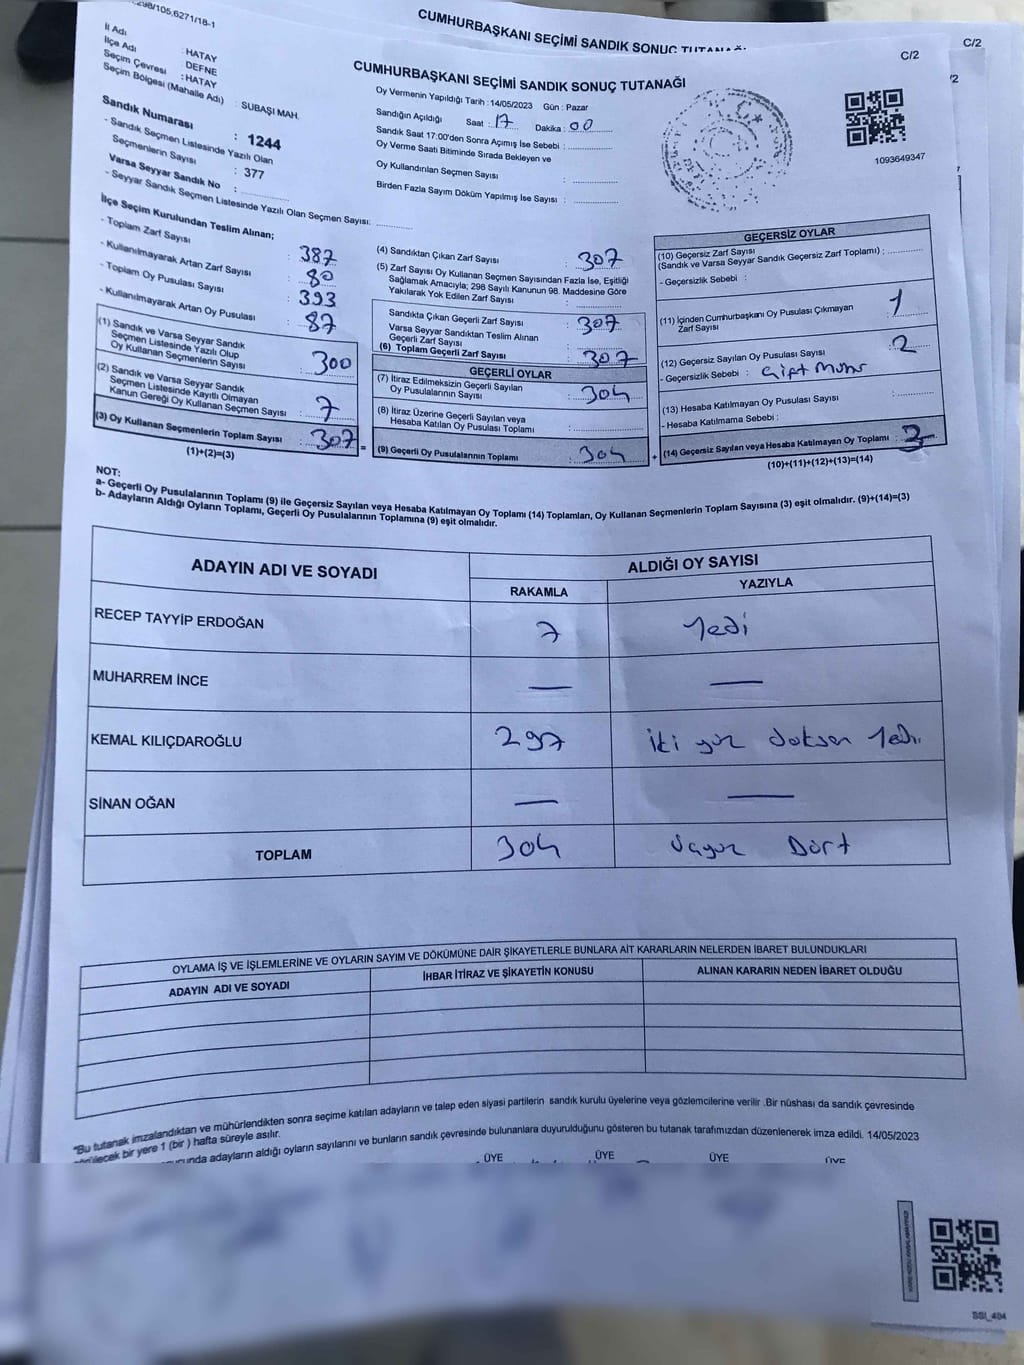 298/105,6271/18-1
CUMHURBAŞKANI SEÇİMİ SANDIK SONUÇ TUTANAĞI
C/2
C/2
/2
CUMHURBAŞKANI SEÇİMİ SANDIK SONUÇ TUTANAĞI
İl Adı : HATAY
İlçe Adı DEFNE
Seçim Çevresi : HATAY
Seçim Bölgesi (Mahalle Adı) : SUBAŞI MAH.
Sandık Numarası : 1244
- Sandık Seçmen Listesinde Yazılı Olan
Seçmenlerin Sayısı : 377
Varsa Seyyar Sandık No :
- Seyyar Sandık Seçmen Listesinde Yazılı Olan Seçmen Sayısı:
Oy Vermenin Yapıldığı Tarih : 14/05/2023 Gün : Pazar
Sandığın Açıldığı Saat : 17 Dakika : 00
Sandık Saat 17:00'den Sonra Açımış İse Sebebi :
Oy Verme Saati Bitiminde Sırada Bekleyen ve
Oy Kullandırılan Seçmen Sayısı :
Birden Fazla Sayım Döküm Yapılmış İse Sayısı :
1093649347
İlçe Seçim Kurulundan Teslim Alınan;
- Toplam Zarf Sayısı : 387
- Kullanılmayarak Artan Zarf Sayısı : 80
- Toplam Oy Pusulası Sayısı : 393
- Kullanılmayarak Artan Oy Pusulası : 87
(1) Sandık ve Varsa Seyyar Sandık
Seçmen Listesinde Yazılı Olup
Oy Kullanan Seçmenlerin Sayısı : 300
(2) Sandık ve Varsa Seyyar Sandık
Seçmen Listesinde Kayıtlı Olmayan
Kanun Gereği Oy Kullanan Seçmen Sayısı : 7
(3) Oy Kullanan Seçmenlerin Toplam Sayısı : 307 =
(1)+(2)=(3)
(4) Sandıktan Çıkan Zarf Sayısı : 307
(5) Zarf Sayısı Oy Kullanan Seçmen Sayısından Fazla İse, Eşitliği
Sağlamak Amacıyla; 298 Sayılı Kanunun 98. Maddesine Göre
Yakılarak Yok Edilen Zarf Sayısı :
Sandıkta Çıkan Geçerli Zarf Sayısı : 307
Varsa Seyyar Sandıktan Teslim Alınan
Geçerli Zarf Sayısı :
(6) Toplam Geçerli Zarf Sayısı : 307
GEÇERLİ OYLAR
(7) İtiraz Edilmeksizin Geçerli Sayılan
Oy Pusulalarının Sayısı : 304
(8) İtiraz Üzerine Geçerli Sayılan veya
Hesaba Katılan Oy Pusulası Toplamı :
(9) Geçerli Oy Pusulalarının Toplamı : 304 +
GEÇERSİZ OYLAR
(10) Geçersiz Zarf Sayısı
(Sandık ve Varsa Seyyar Sandık Geçersiz Zarf Toplamı) :
- Geçersizlik Sebebi :
(11) İçinden Cumhurbaşkanı Oy Pusulası Çıkmayan
Zarf Sayısı : 1
(12) Geçersiz Sayılan Oy Pusulası Sayısı : 2
- Geçersizlik Sebebi : Çift Mühür
(13) Hesaba Katılmayan Oy Pusulası Sayısı :
- Hesaba Katılmama Sebebi :
(14) Geçersiz Sayılan veya Hesaba Katılmayan Oy Toplamı : 3
(10)+(11)+(12)+(13)=(14)
NOT:
a- Geçerli Oy Pusulalarının Toplamı (9) ile Geçersiz Sayılan veya Hesaba Katılmayan Oy Toplamı (14) Toplamları, Oy Kullanan Seçmenlerin Toplam Sayısına (3) eşit olmalıdır. (9)+(14)=(3)
b- Adayların Aldığı Oyların Toplamı, Geçerli Oy Pusulalarının Toplamına (9) eşit olmalıdır.
ADAYIN ADI VE SOYADI
ALDIĞI OY SAYISI
RAKAMLA YAZIYLA
RECEP TAYYİP ERDOĞAN 7 Yedi
MUHARREM İNCE —— ——
KEMAL KILIÇDAROĞLU 297 İki yüz doksan Yedi
SİNAN OĞAN —— ——
TOPLAM 304 üçyüz Dört
OYLAMA İŞ VE İŞLEMLERİNE VE OYLARIN SAYIM VE DÖKÜMÜNE DAİR ŞİKAYETLERLE BUNLARA AİT KARARLARIN NELERDEN İBARET BULUNDUKLARI
ADAYIN ADI VE SOYADI İHBAR İTİRAZ VE ŞİKAYETİN KONUSU ALINAN KARARIN NEDEN İBARET OLDUĞU
*Bu tutanak imzalandıktan ve mühürlendikten sonra seçime katılan adayların ve talep eden siyasi partilerin sandık kurulu üyelerine veya gözlemcilerine verilir .Bir nüshası da sandık çevresinde
görülecek bir yere 1 (bir ) hafta süreyle asılır.
adayların aldığı oyların sayılarını ve bunların sandık çevresinde bulunanlara duyurulduğunu gösteren bu tutanak tarafımızdan düzenlenerek imza edildi. 14/05/2023
ÜYE ÜYE ÜYE ÜYE